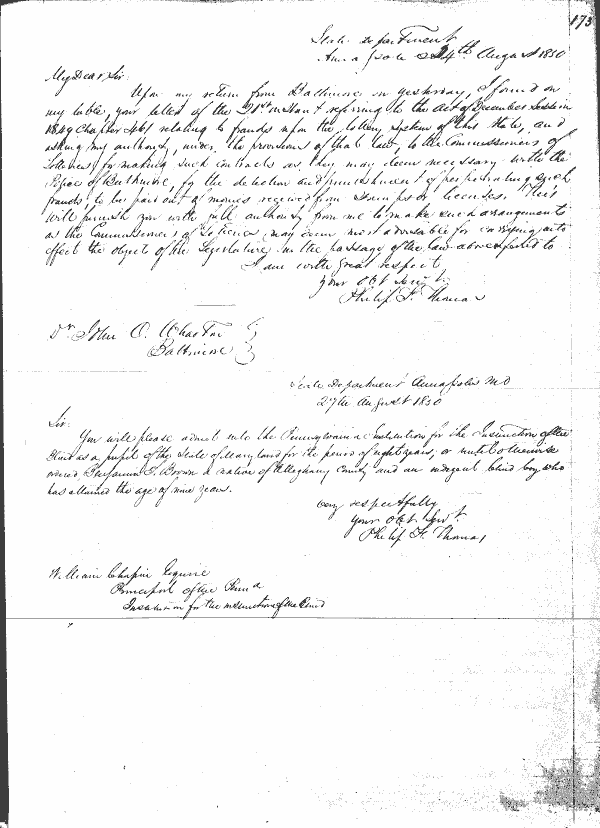 173
State Department
Annapolis 24th August 1850
My Dear Sir:
Upon my return from Baltimore on yesterday, I found on
my table, your letter of the 21st instant referring to the Act of December Session
1849 Chapter relating to frauds upon the lottery system of this State, and
asking my authority, under the provisions of that law, to the Commissioners of
Lotteries for making such contracts as they may deem necessary with the
Police of Baltimore, for the detection and punishment of perpetrating such
frauds to be paid out of monies received from stamps or licenses. This
will furnish you with full authority from me to make such arrangements
as the Commissioners of Lotteries may deem most advisable for carrying into
effect the objects of the Legislature in the passage of the law above referred to
I am with great respect
Your Obt Servt
Philip F. Thomas
Dr John O. Wharton
Baltimore
State Department Annapolis Md
27th August 1850
Sir:
You will please admit into the Pennsylvania Institution for the Instruction of the
Blind as a pupil of the State of Maryland for the period of eight years, or until otherwise
ordered Benjamin F. Brown a native of Alleghany County and an indigent blind boy who
has attained the age of nine years.
very respectfully
your Obt Servt.
Philip F. Thomas
William Chapin Esquire
Principal of the Penna
Institution for the instruction of the Blind